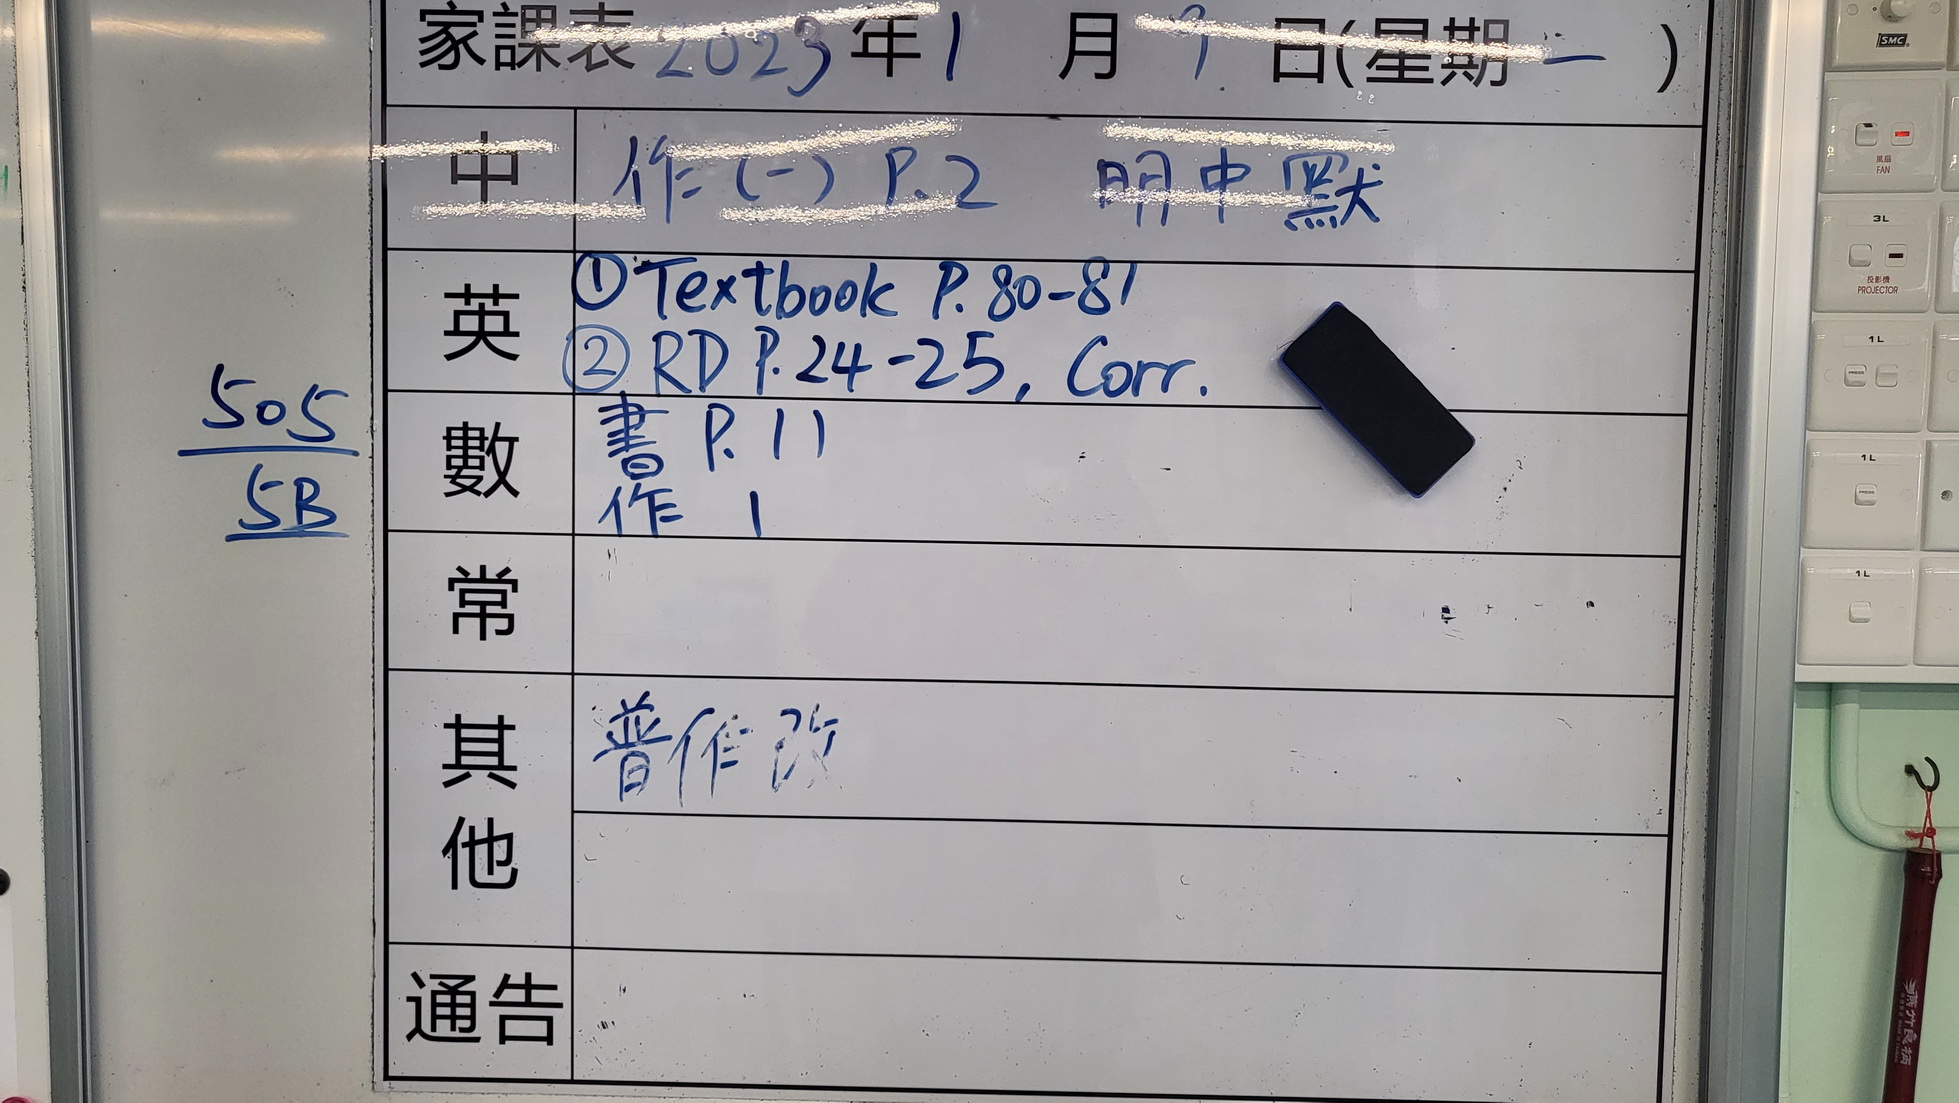 家課表 2023年1月9日(星期一)
中 作(一) P.2 明中默
英 ① Textbook P.80-81
② RD P.24-25, Corr.
數 書 P.11
作 1
常
其他 普作改
通告
505
5B
SMC
風扇
FAN
3L
投影機
PROJECTOR
1L
PRESS
1L
PRESS
1L